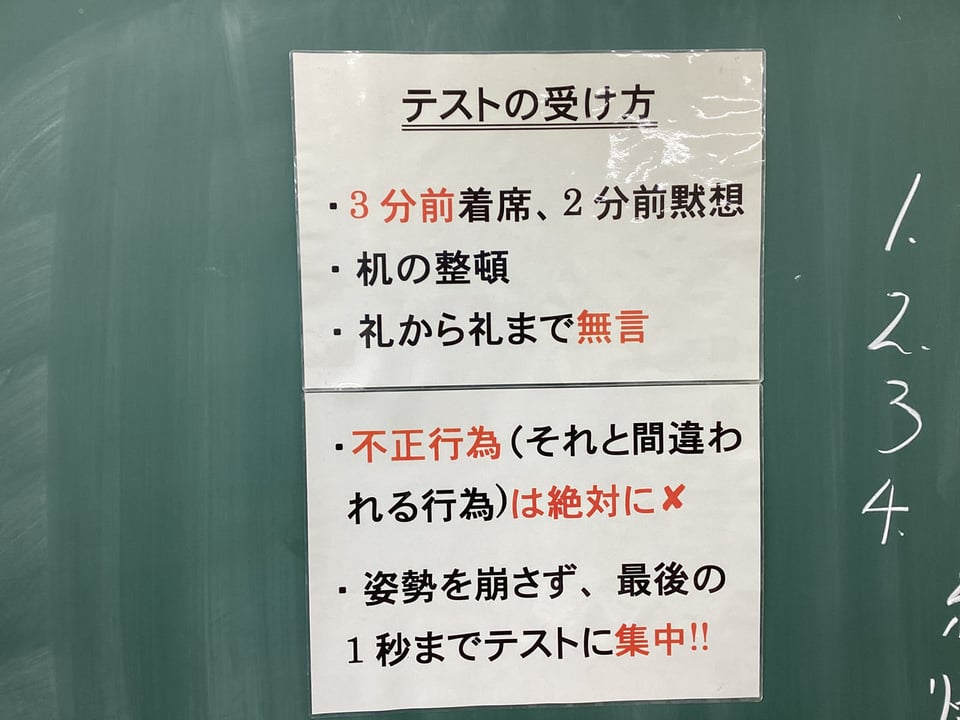 テストの受け方
・3分前着席、2分前黙想
・机の整頓
・礼から礼まで無言
・不正行為(それと間違わ
れる行為)は絶対に✘
・姿勢を崩さず、最後の
1秒までテストに集中!!
1.
2.
3
4.